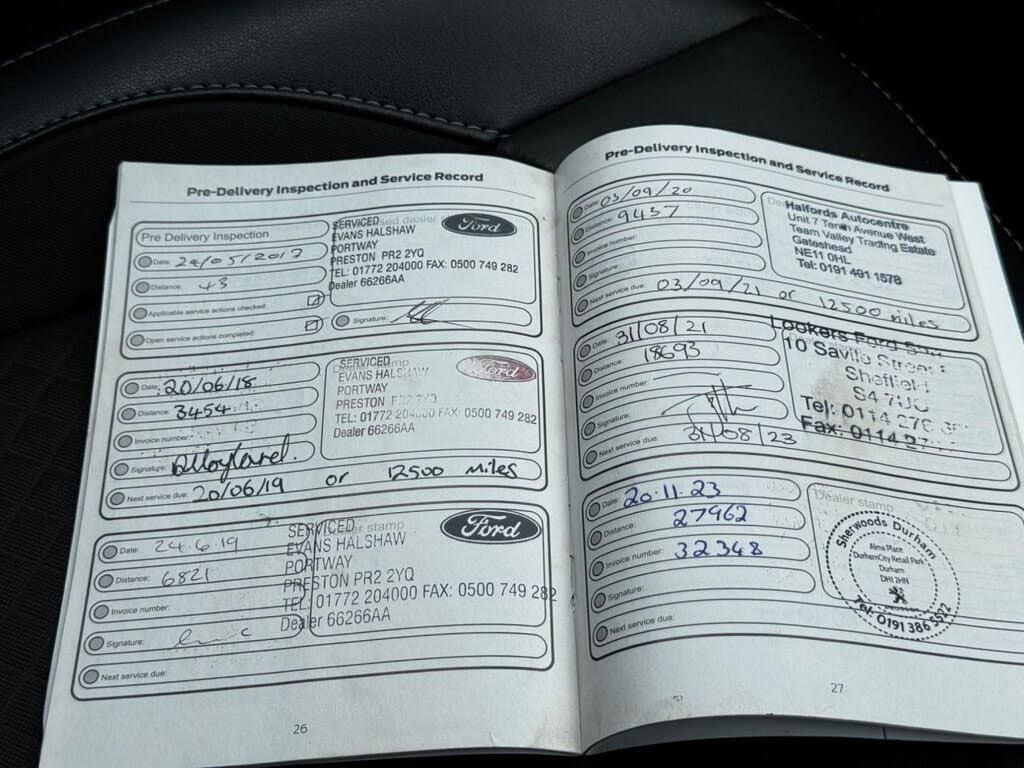 Pre-Delivery Inspection and Service Record
Pre Delivery Inspection
Date: 24/05/2017
Distance: 43
Applicable service actions checked:
Open service actions completed:
SERVICED
EVANS HALSHAW
PORTWAY
PRESTON PR2 2YQ
TEL: 01772 204000 FAX: 0500 749 282
Dealer 66266AA
Ford
Signature:
Date: 20/06/18
Distance: 3454
Invoice number:
Signature:
Next service due: 20/06/19 or 12500 miles
SERVICED stamp
EVANS HALSHAW
PORTWAY
PRESTON PR2 2YQ
TEL: 01772 204000 FAX: 0500 749 282
Dealer 66266AA
Ford
Date: 24.6.19
Distance: 6821
Invoice number:
Signature:
Next service due:
SERVICED stamp
EVANS HALSHAW
PORTWAY
PRESTON PR2 2YQ
TEL: 01772 204000 FAX: 0500 749 282
Dealer 66266AA
Ford
26
Pre-Delivery Inspection and Service Record
Date: 03/09/20
Distance: 9437
Invoice number:
Signature:
Next service due: 03/09/21 or 12500 miles
Halfords Autocentre
Unit 7 Tenth Avenue West
Team Valley Trading Estate
Gateshead
NE11 0HL
Tel: 0191 491 1578
Date: 31/08/21
Distance: 18693
Invoice number:
Signature:
Next service due: 31/08/23
Lookers Ford
10 Savile Street
Sheffield
S4 7UD
Tel: 0114 276
Fax: 0114 27
Date: 20.11.23
Distance: 27962
Invoice number: 32348
Signature:
Next service due:
Dealer stamp
Sherwoods Durham
Alma Place
DurhamCity Retail Park
Durham
DH1 2HN
Tel. 0191 386 5512
27